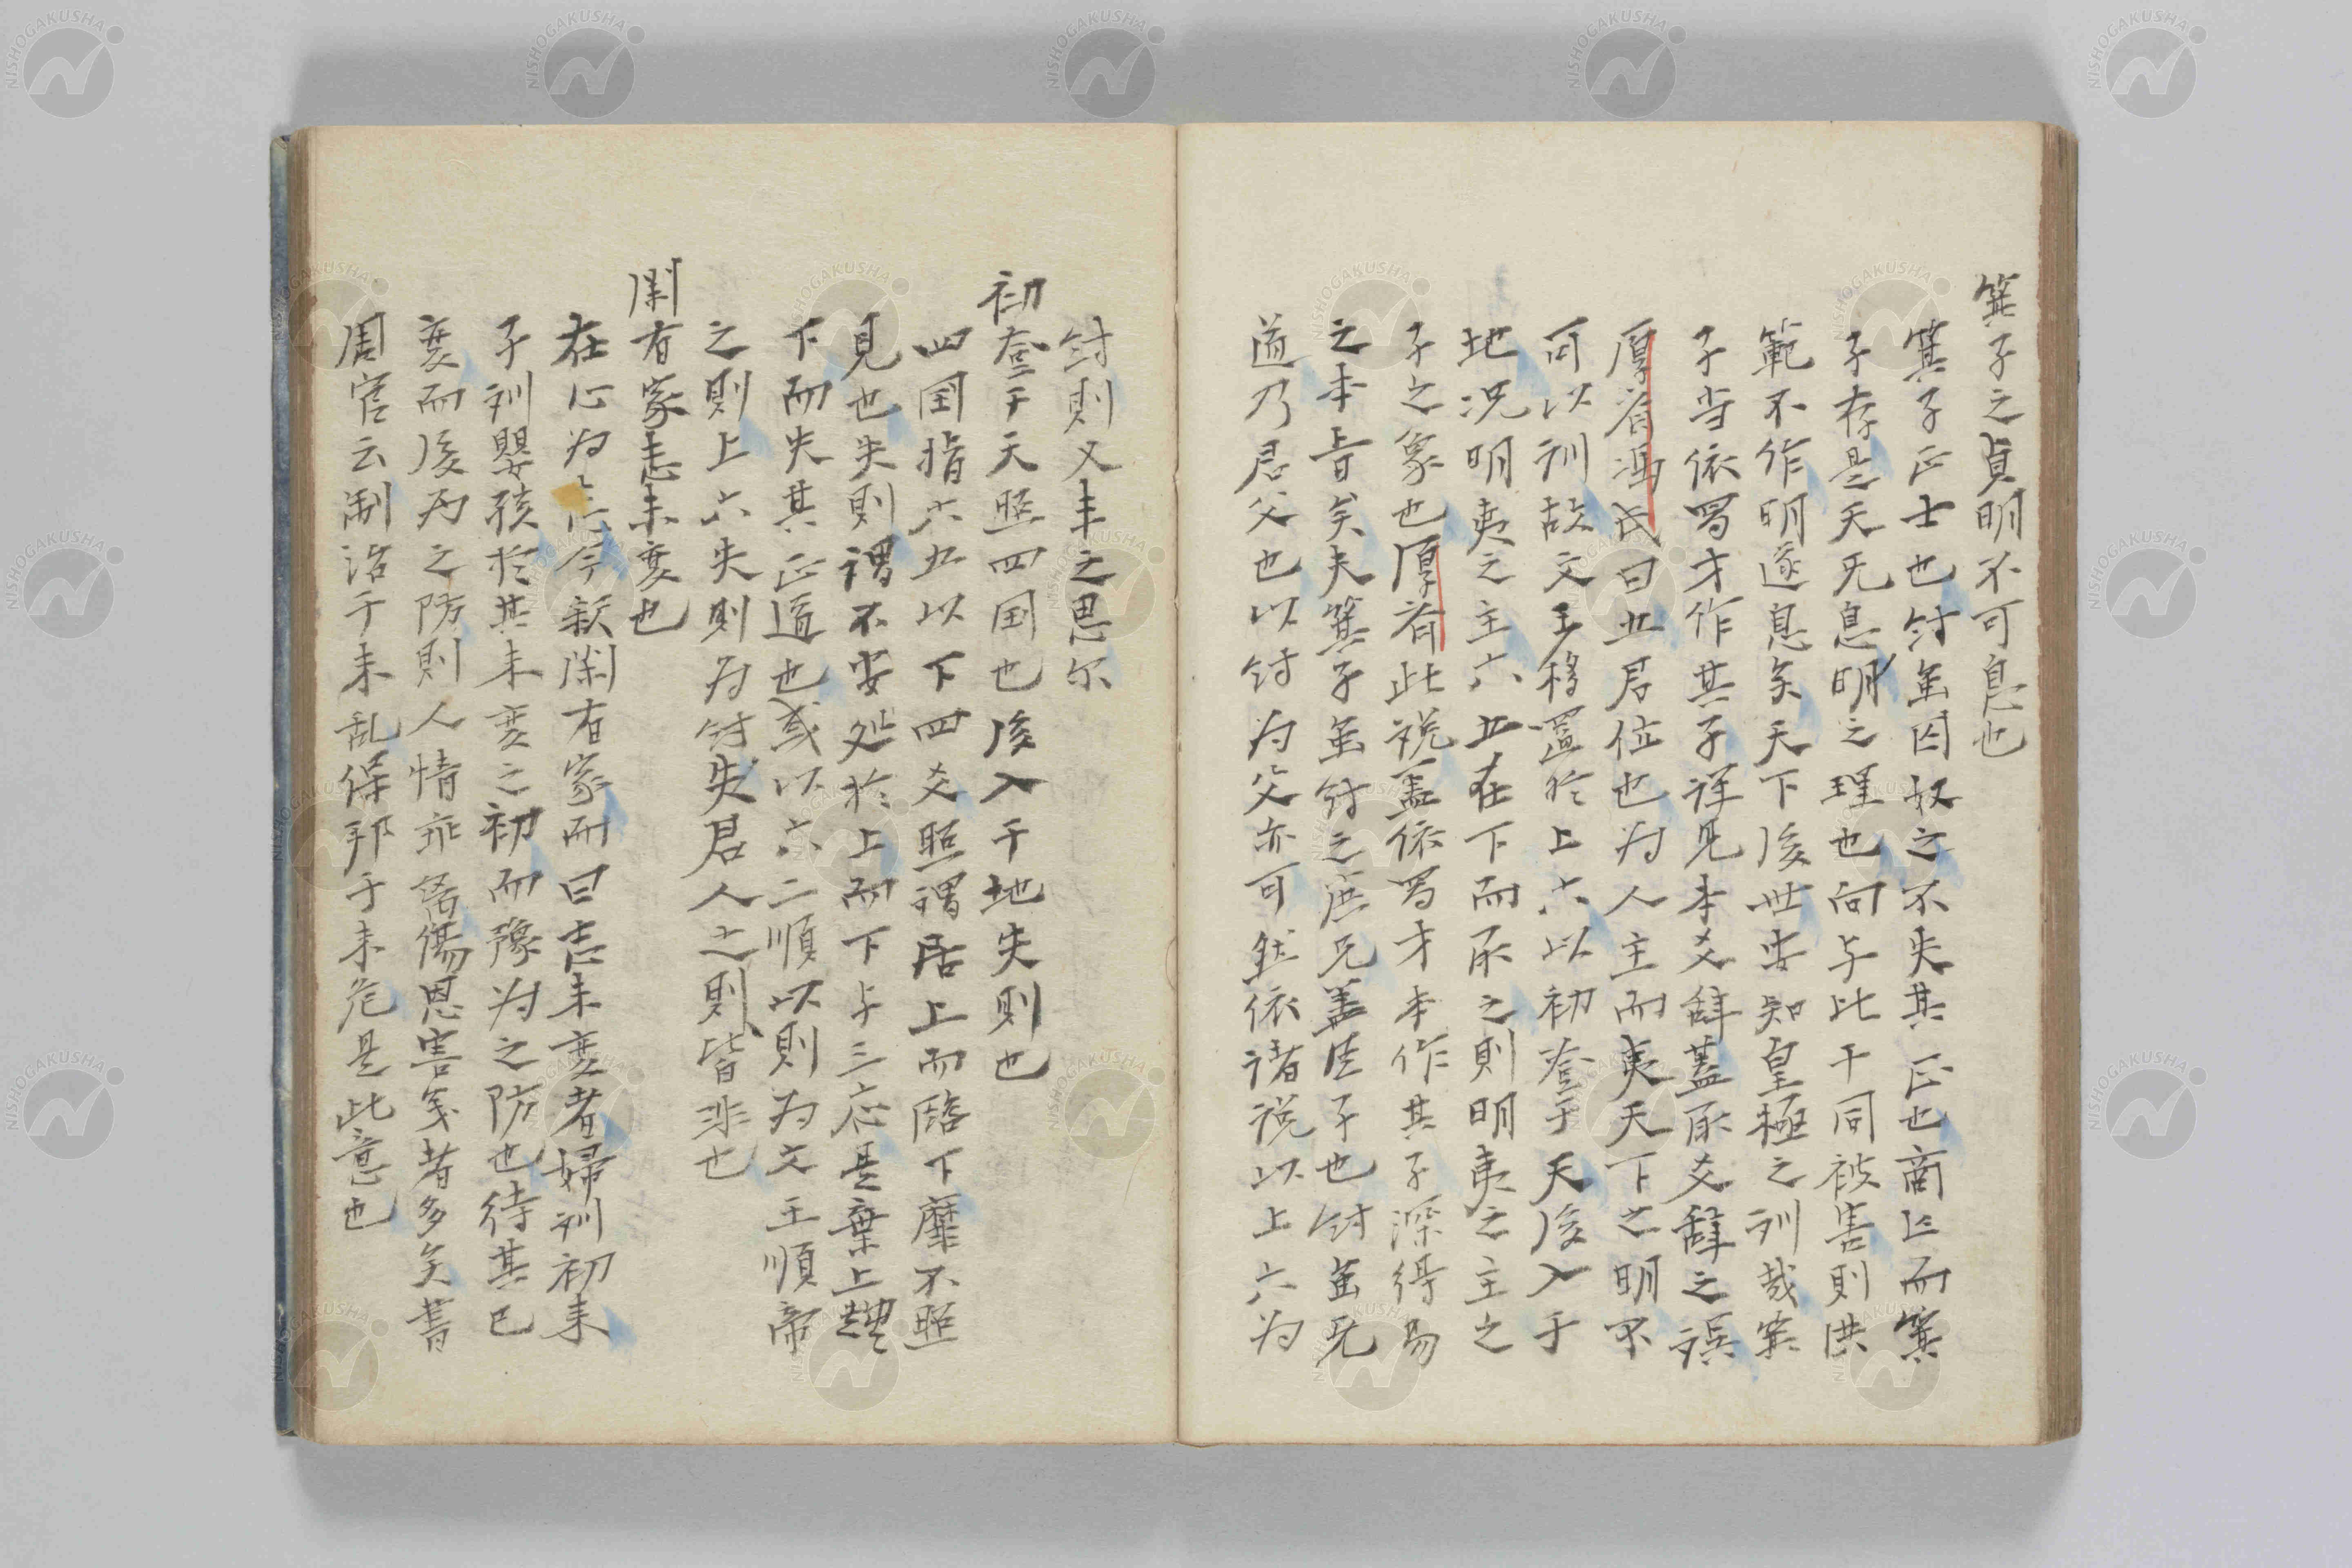 箕子之貞明不可息也
箕子正士也紂虽囚奴之不失其正也商亡而箕
子存是天无息明之理也向与比干同被害則洪
範不作明遂息矣天下後世安知皇極之訓哉箕
子当依蜀才作其子詳見本爻辞蓋承爻辞之誤
厚斋馮氏曰五君位也为人主而夷天下之明不
可以訓故文王移置於上六以初登于天後入于
地况明夷之主六五在下而承之則明夷之主之
子之象也厚斋此説盖依蜀才本作其子深得易
之本旨矣夫箕子虽紂之庶兄盖庶子也紂虽兄
道乃君父也以紂为父亦可然依諸説以上六为
紂則又丰之思尔
初登于天照四国也後入于地失則也
四国指六五以下四爻照謂居上而臨下靡不照
見也失則謂不安処於上而下与三応是棄上體
下而失其正道也或以六二順以則为文王順帝
之則上六失則为紂失君人之則皆非也
閑有家志未变也
在心为志今釈閑有家而曰志未变者婦訓初来
子訓嬰孩於其未变之初而豫为之防也待其已
变而後为之防則人情乖咎傷恩害义者多矣書
周官云制治于未乱保邦于未危是此意也